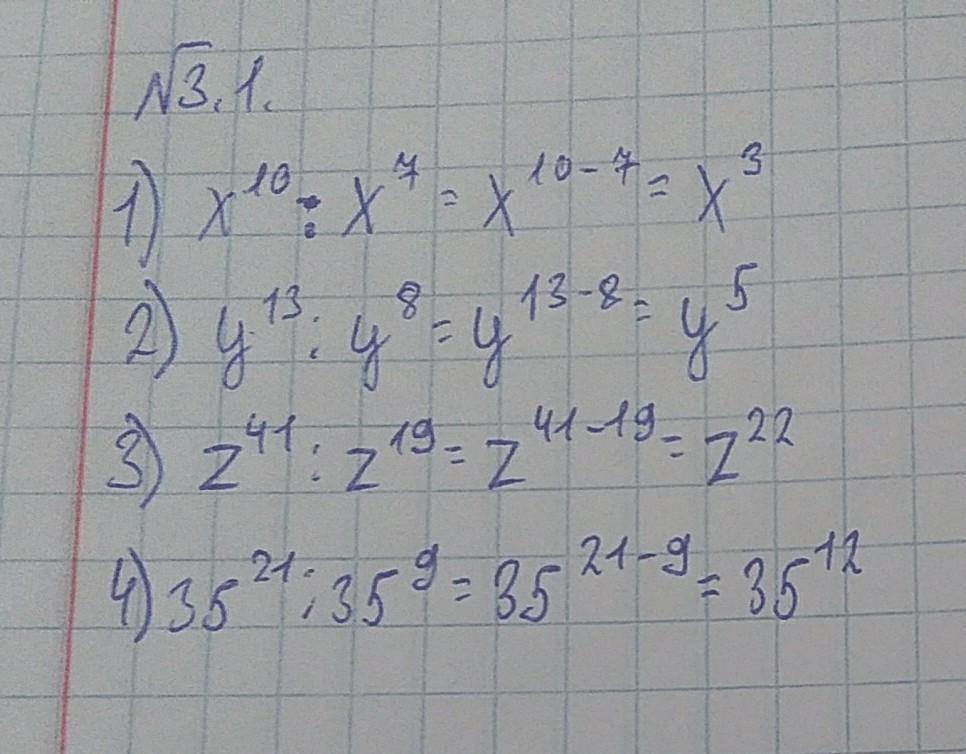 №3.1.
1) x¹⁰ : x⁷ = x¹⁰⁻⁷ = x³
2) y¹³ : y⁸ = y¹³⁻⁸ = y⁵
3) z⁴¹ : z¹⁹ = z⁴¹⁻¹⁹ = z²²
4) 35²¹ : 35⁹ = 35²¹⁻⁹ = 35¹²